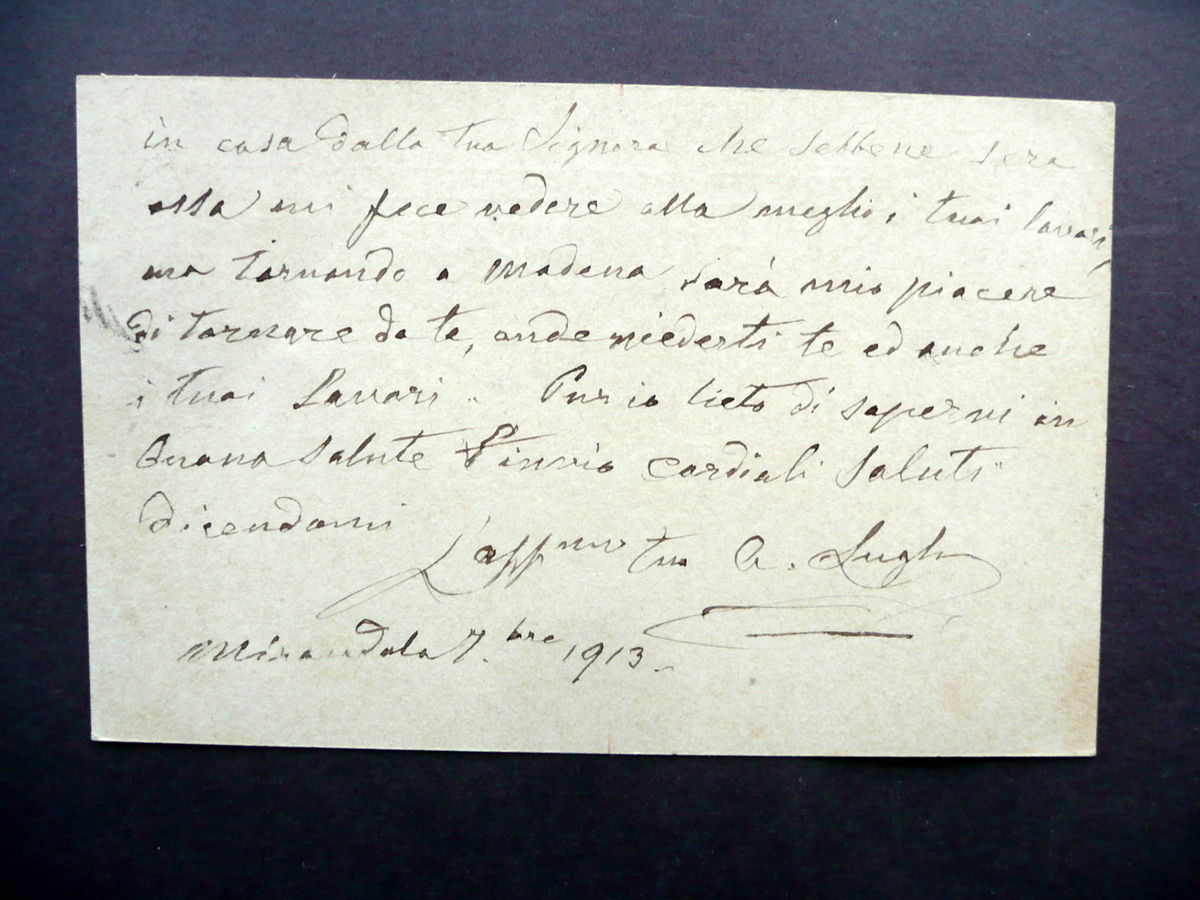 in casa dalla tua Signora che sebbene sera
essa mi fece vedere alla meglio i tuoi lavori,
ma tornando a Modena sarà mio piacere
di tornare da te, onde riederti te ed anche
i tuoi Lavori. Pur io lieto di sapervi in
Buona salute t'invio cordiali saluti
dicendomi
L'aff.mo tuo A. Lughi
Mirandola 7.bre 1913.